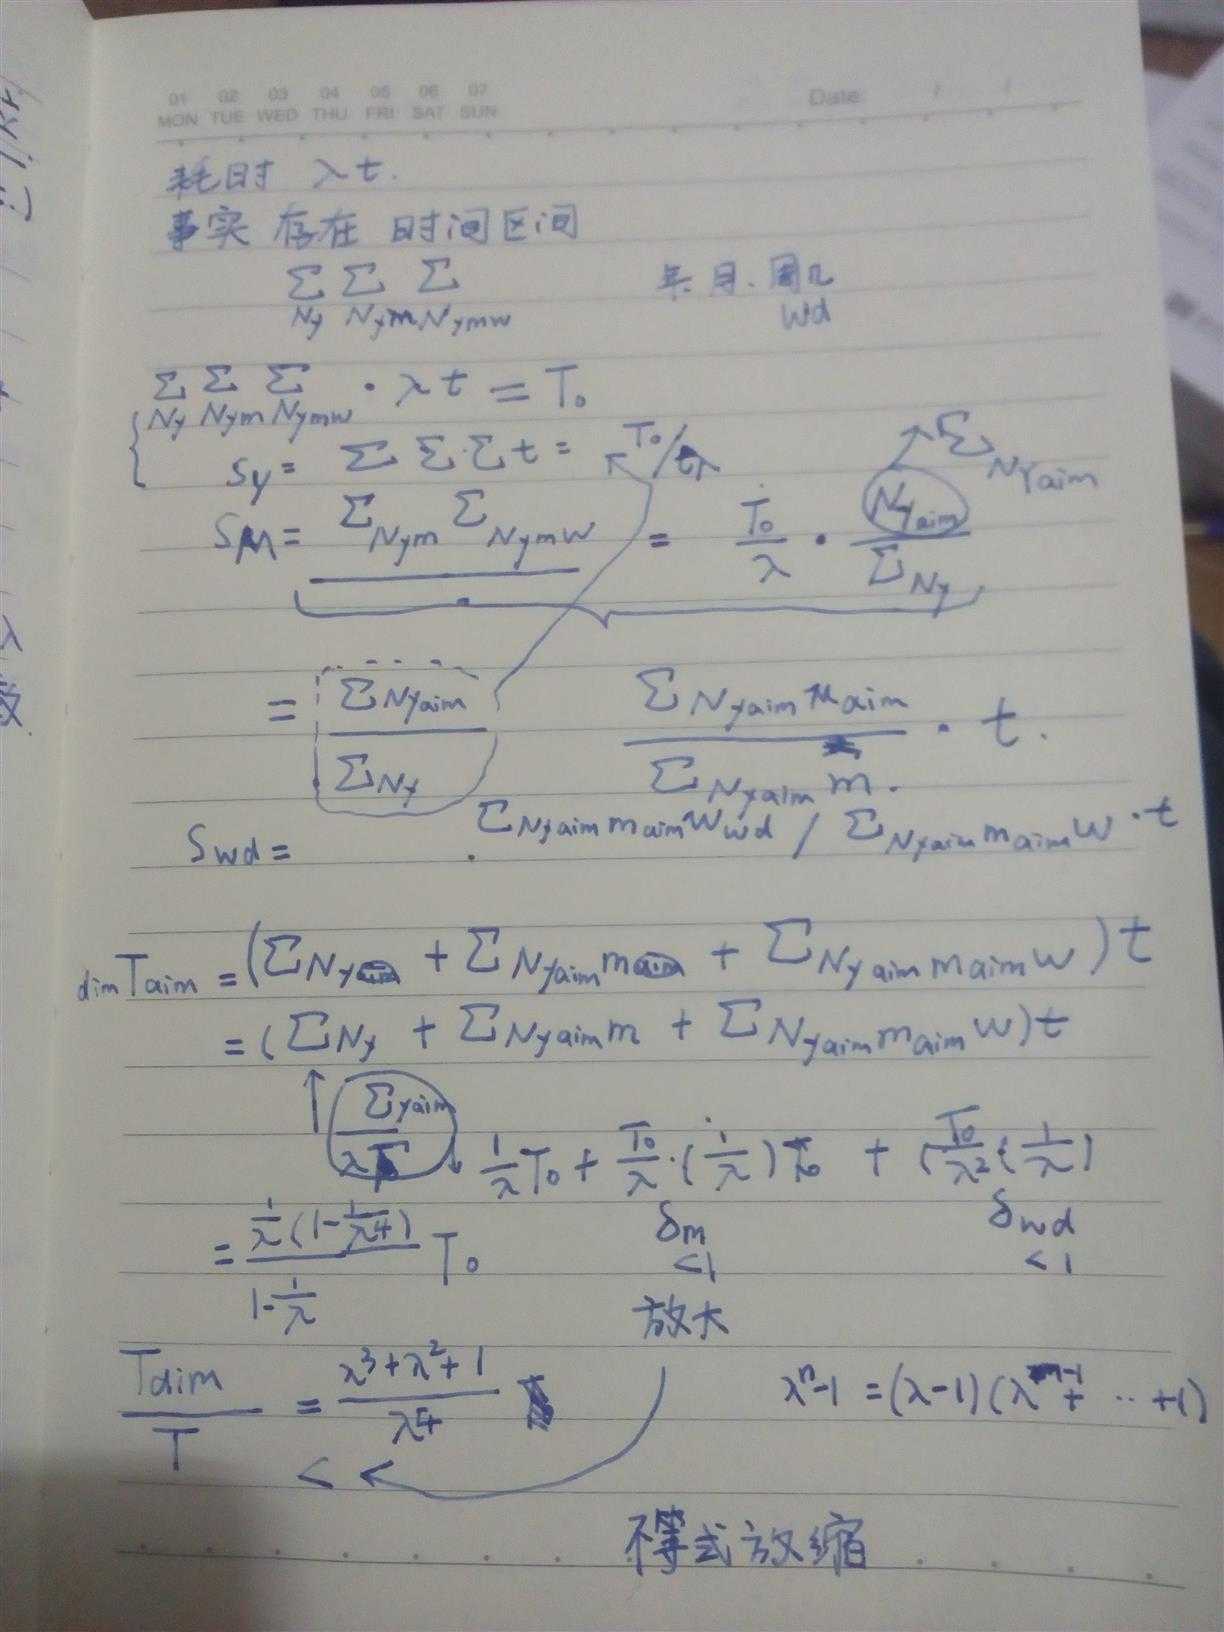 01 02 03 04 05 06 07
MON TUE WED THU FRI SAT SUN
Date
耗时 λt.
事实 存在 时间区间
Σ_Ny Σ_Nym Σ_Nymw 年.月.周几
wd
Σ_Ny Σ_Nym Σ_Nymw · λt = T₀
Sy = Σ Σ·Σ t = T₀/λ
Σ_NYaim
SM = Σ_Nym Σ_Nymw = T₀/λ · Nyaim/Σ_Ny
= ΣNyaim/ΣNy ΣNyaim maim/ΣNyaim m · t.
Swd = · ΣNyaim maim wwd / ΣNyaim maim w · t
dim Taim = (ΣNy + ΣNyaim m + ΣNyaim maim w) t
= (ΣNy + ΣNyaim m + ΣNyaim maim w) t
↑ Σyaim/λ ↓ 1/λ T₀ + T₀/λ · (1/λ) T₀ + (T₀/λ² (1/λ)
= 1/λ(1-1/λ⁴)/1-1/λ T₀
δm <1
δwd <1
放大
Taim/T = λ³+λ²+1/λ⁴
λⁿ-1 = (λ-1)(λⁿ⁻¹+ ··· +1)
< ←
不等式放缩